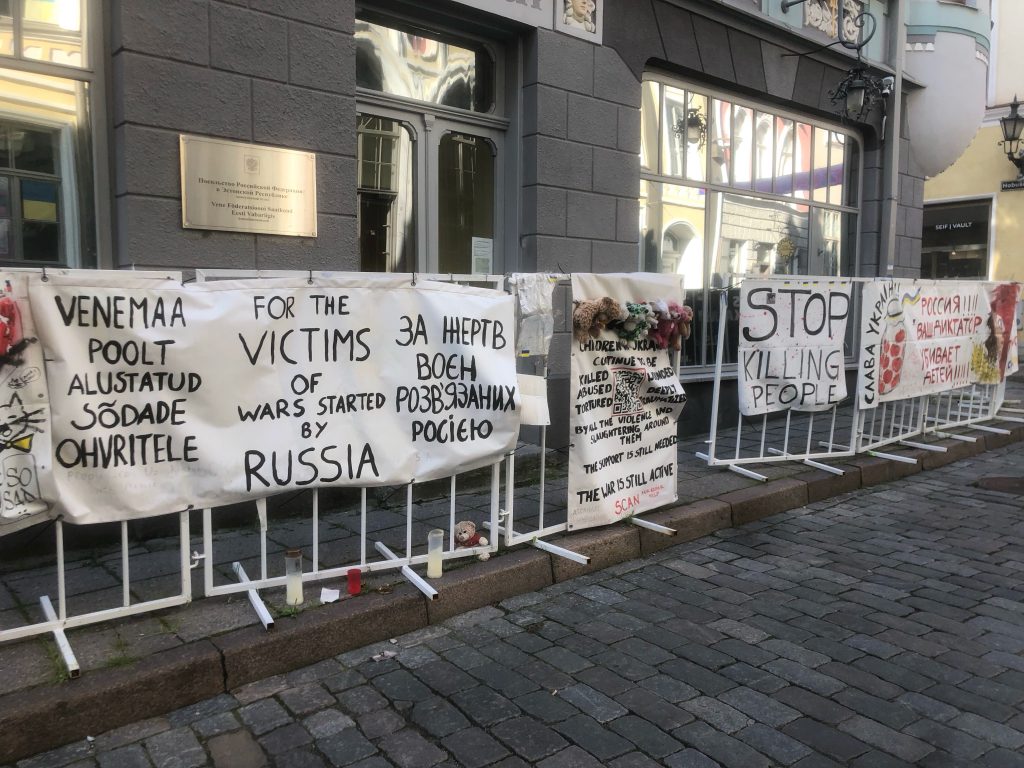 Посольство Российской Федерации
в Эстонской Республике
Vene Föderatsiooni Saatkond
Eesti Vabariigis
VENEMAA
POOLT
ALUSTATUD
SÕDADE
OHVRITELE
FOR THE
VICTIMS
OF
WARS STARTED
BY
RUSSIA
ЗА ЖЕРТВ
ВОЄН
РОЗВ'ЯЗАНИХ
РОСІЄЮ
CHILDREN
KILLED
ABUSED
TORTURED
BY ALL THE VIOLENCE AND
SLAUGHTERING AROUND
THEM
THE SUPPORT IS STILL NEEDED
THE WAR IS STILL ACTIVE
SCAN
STOP
KILLING
PEOPLE
СЛАВА УКРАЇНІ!
РОССИЯ!!!!
ВАШ ДИКТАТОР
УБИВАЕТ
ДЕТЕЙ!!!!!
SEIF | VAULT